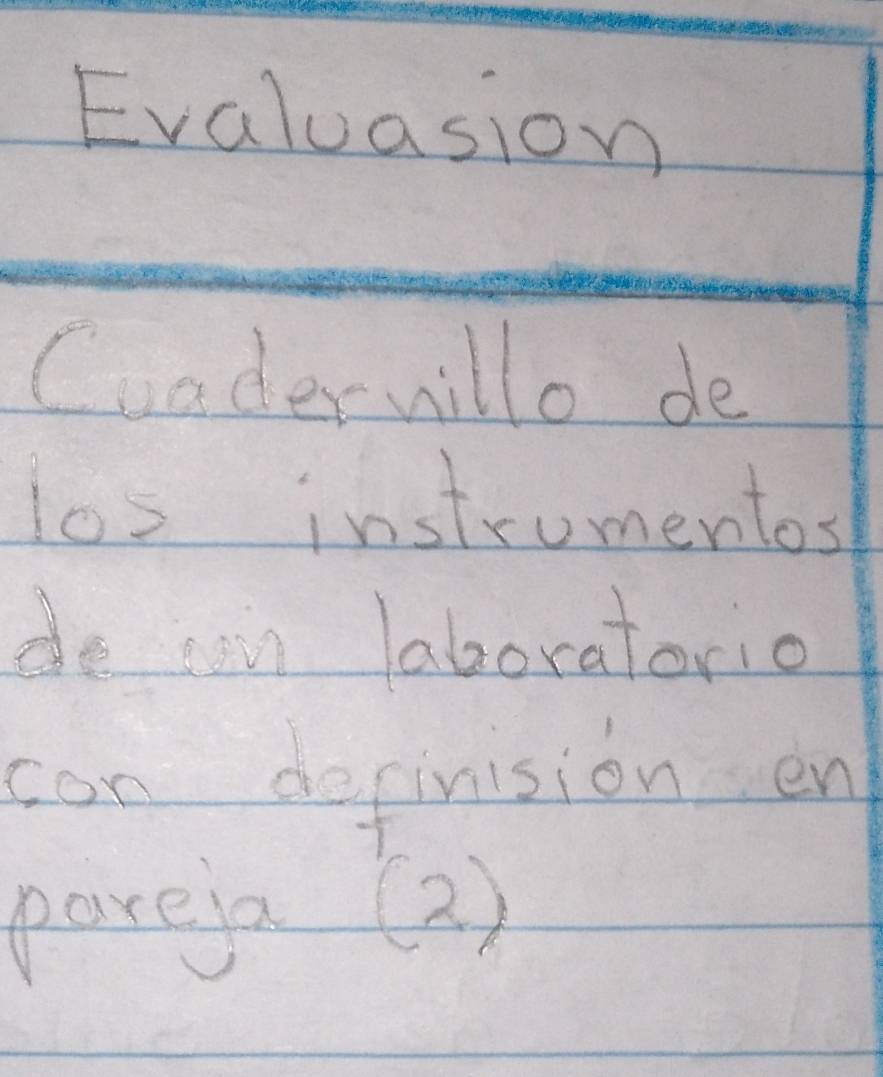 Evaluasion
Cuadernillo de
los instrumentos
de un laboratorio
con definisión en
pareja (2)